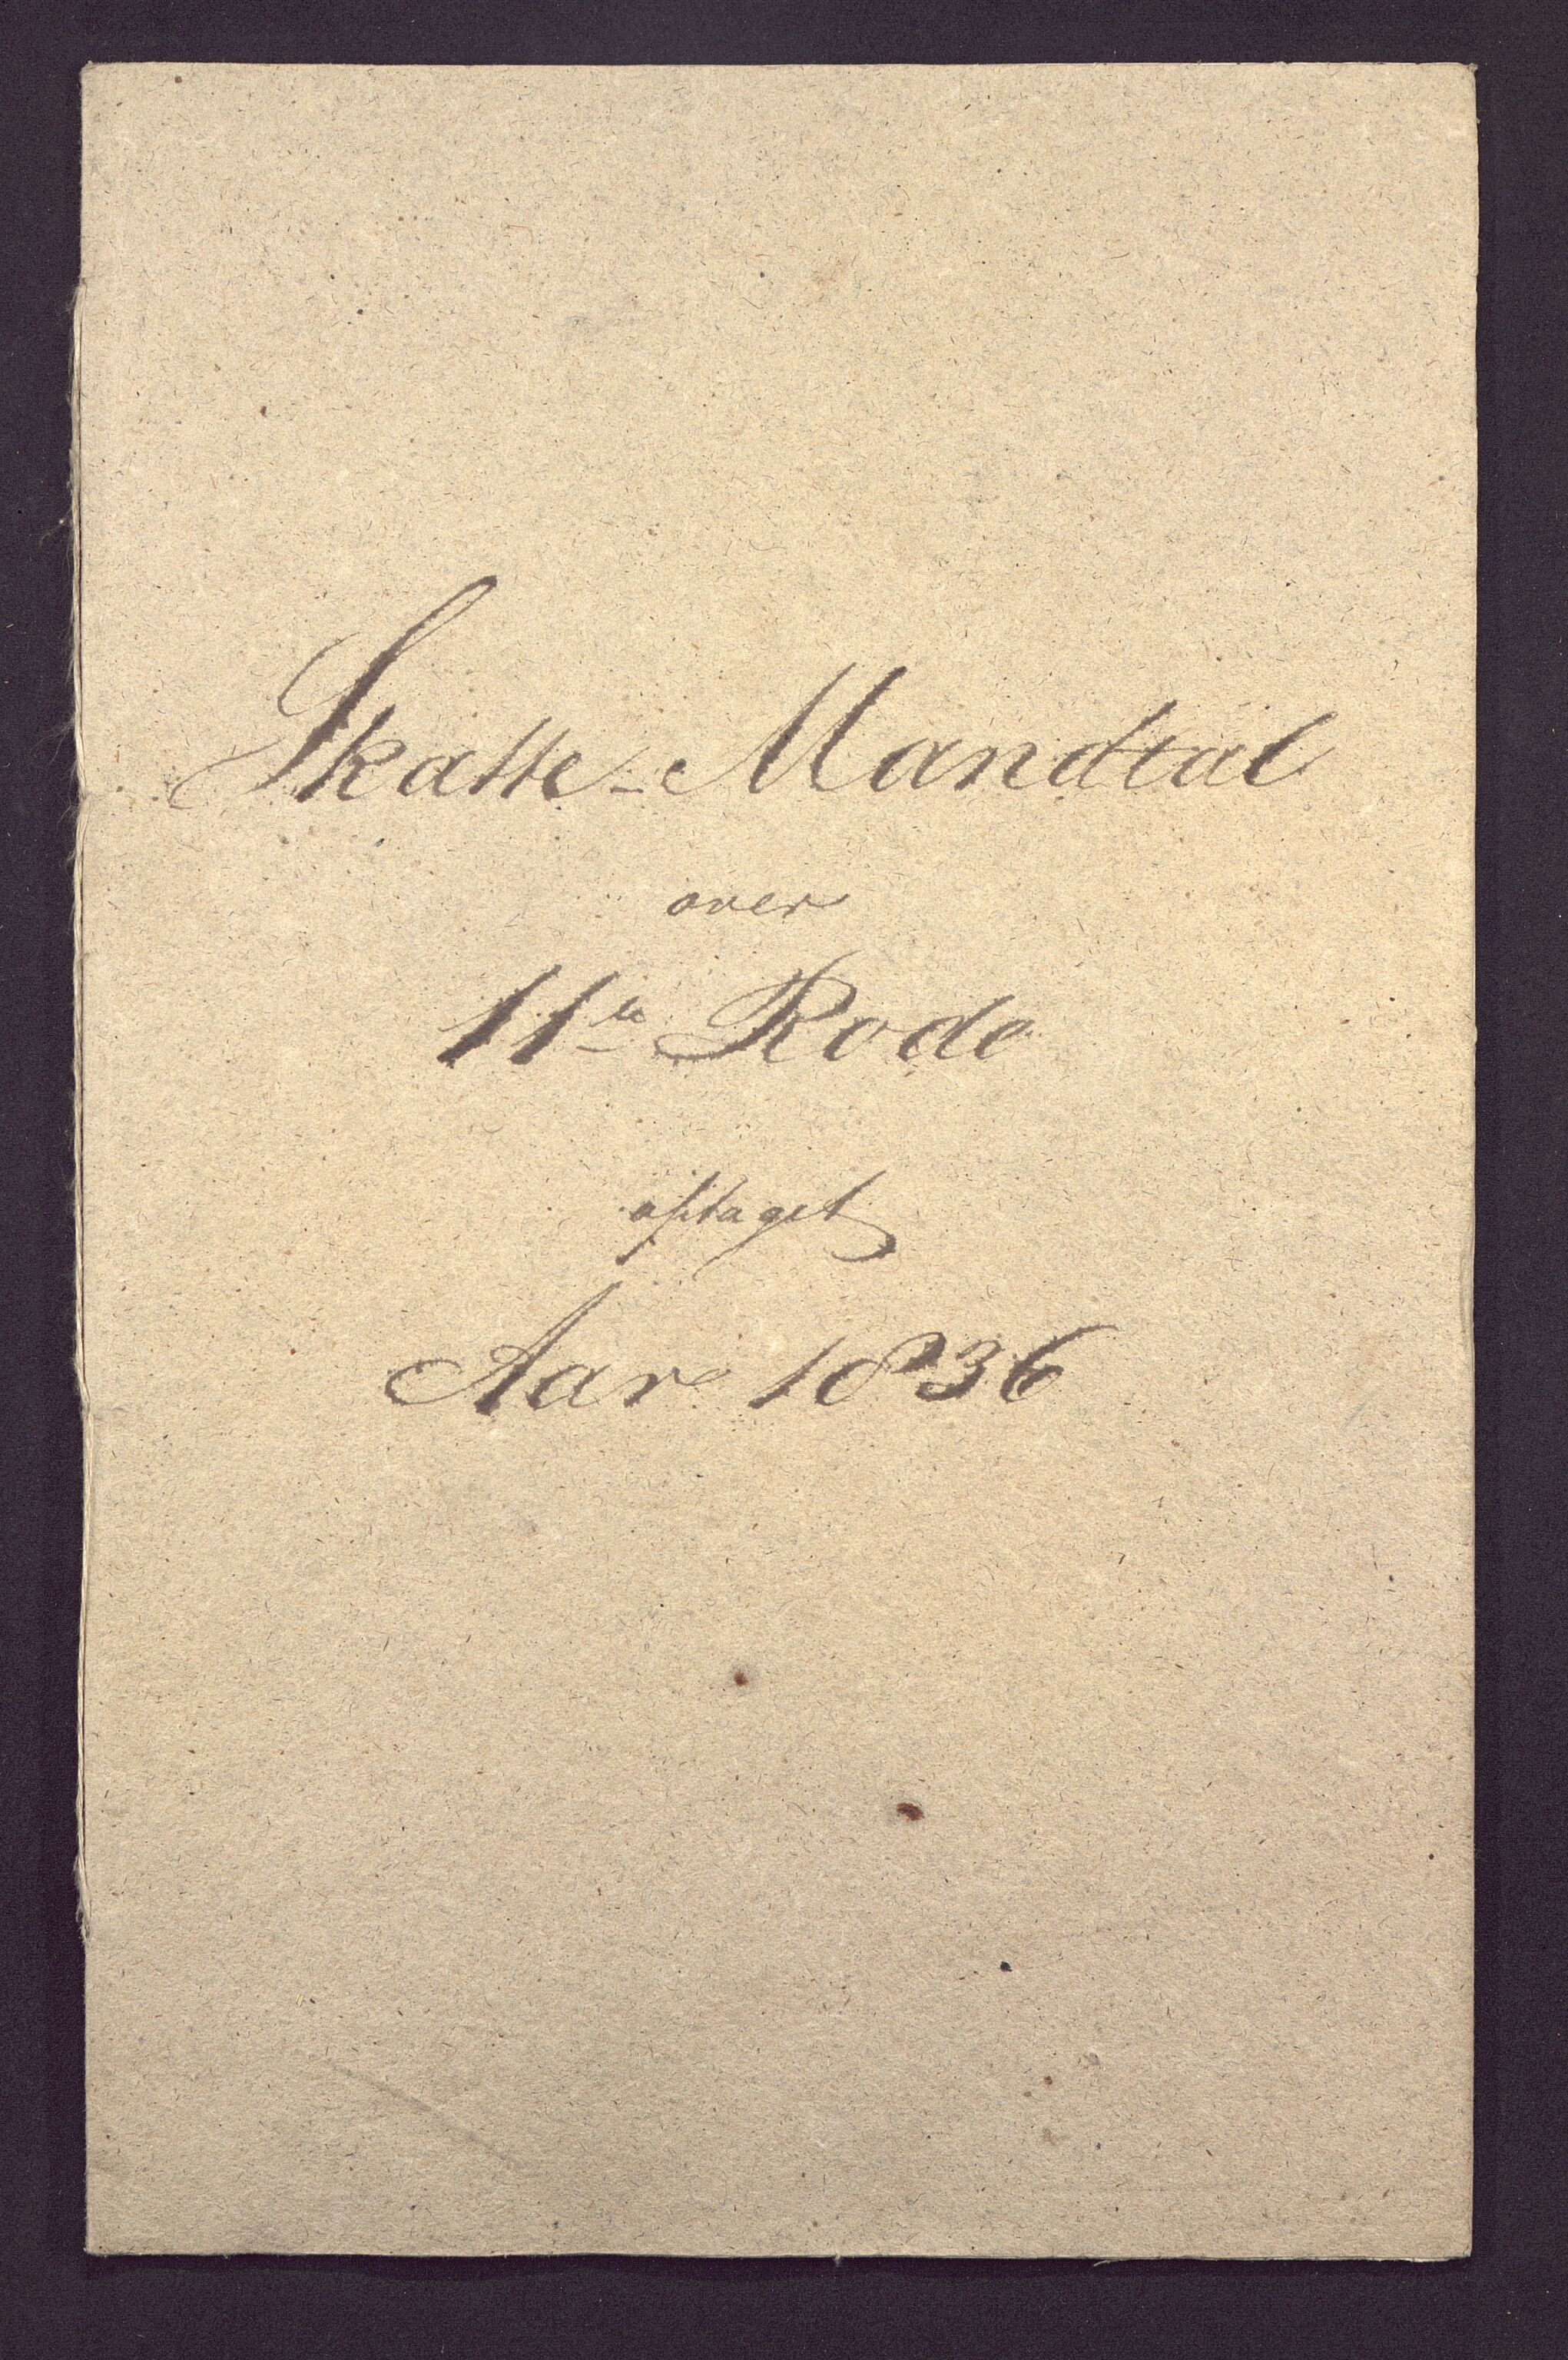 Skatte-Mandtal
over
11te Rode
optaget
Aar 1836